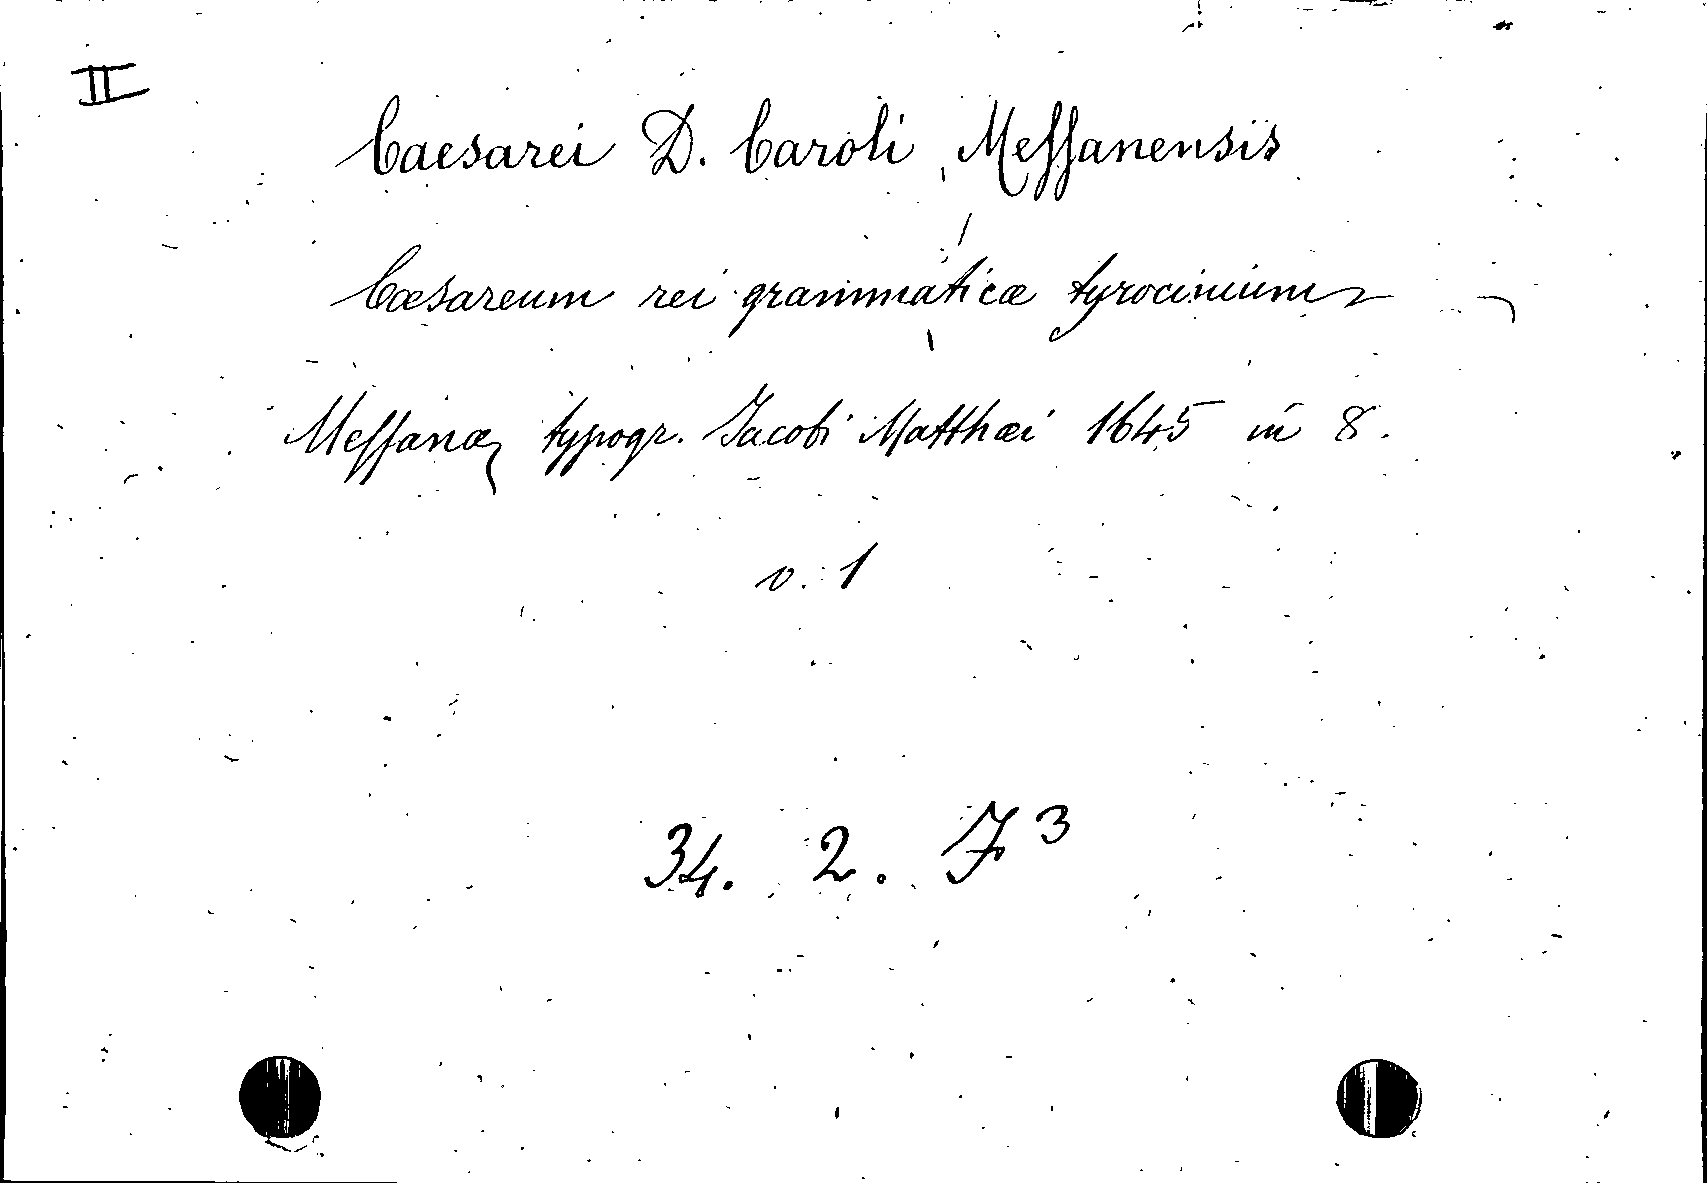 II
Caesarei D. Caroli Messanensis
Cæsareum rei grammaticæ tyrocinium
Messanæ, typogr. Jacobi Matthæi 1645 in 8.
v. 1
34. 2. F 3